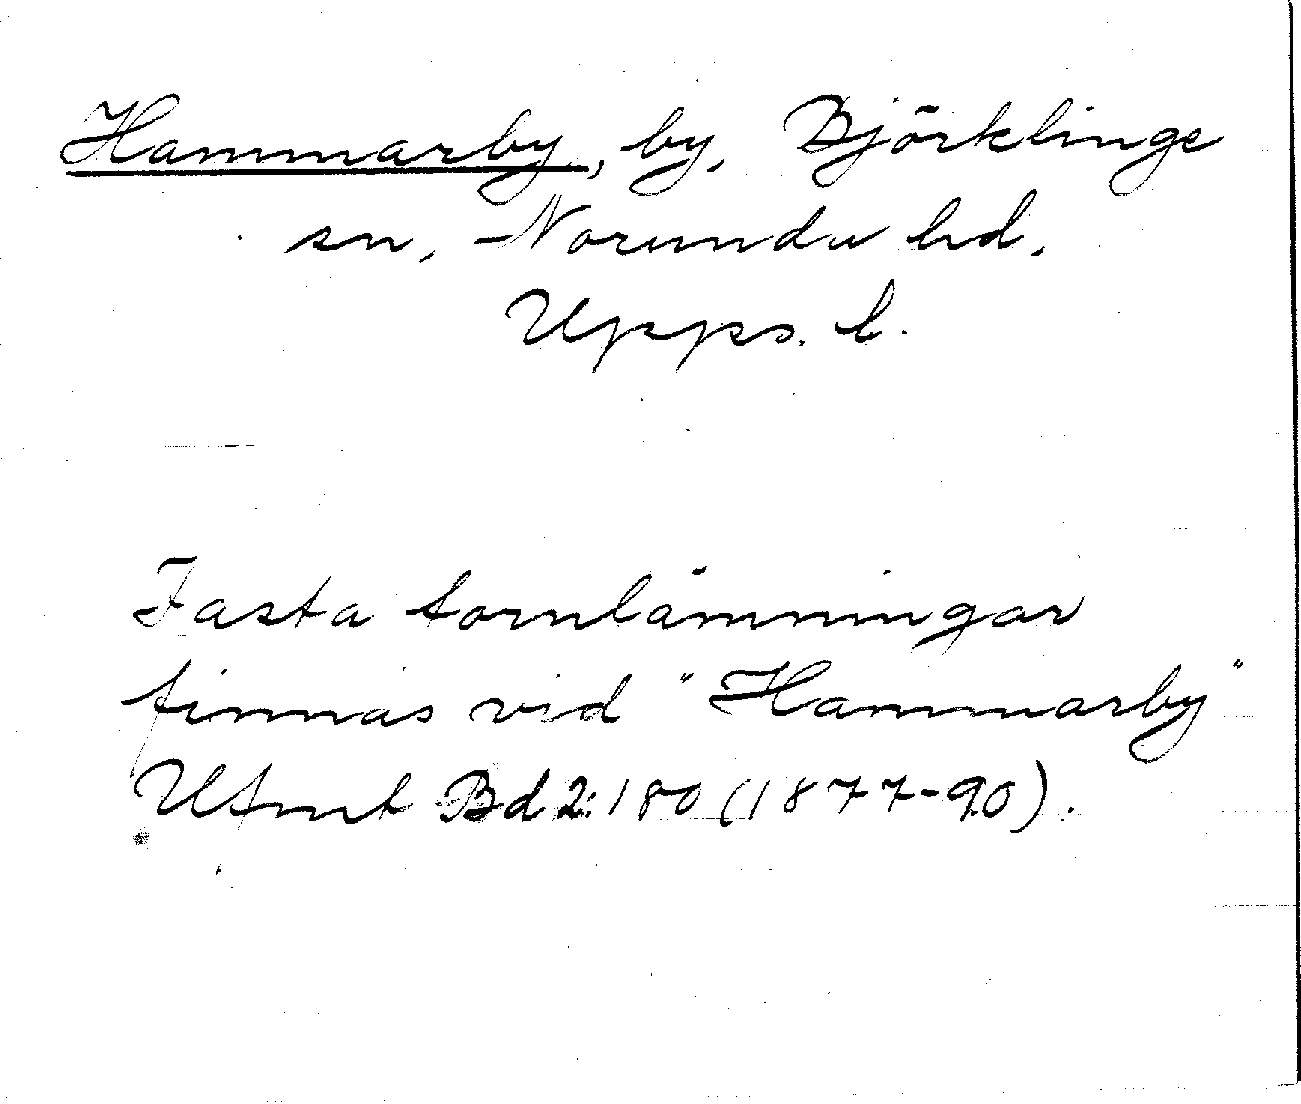 Hammarby, by, Björklinge
sn, Norunda hd.
Upps. l.
Fasta fornlämningar
finnas vid "Hammarby"
Ufmt Bd 2:180 (1877-90).